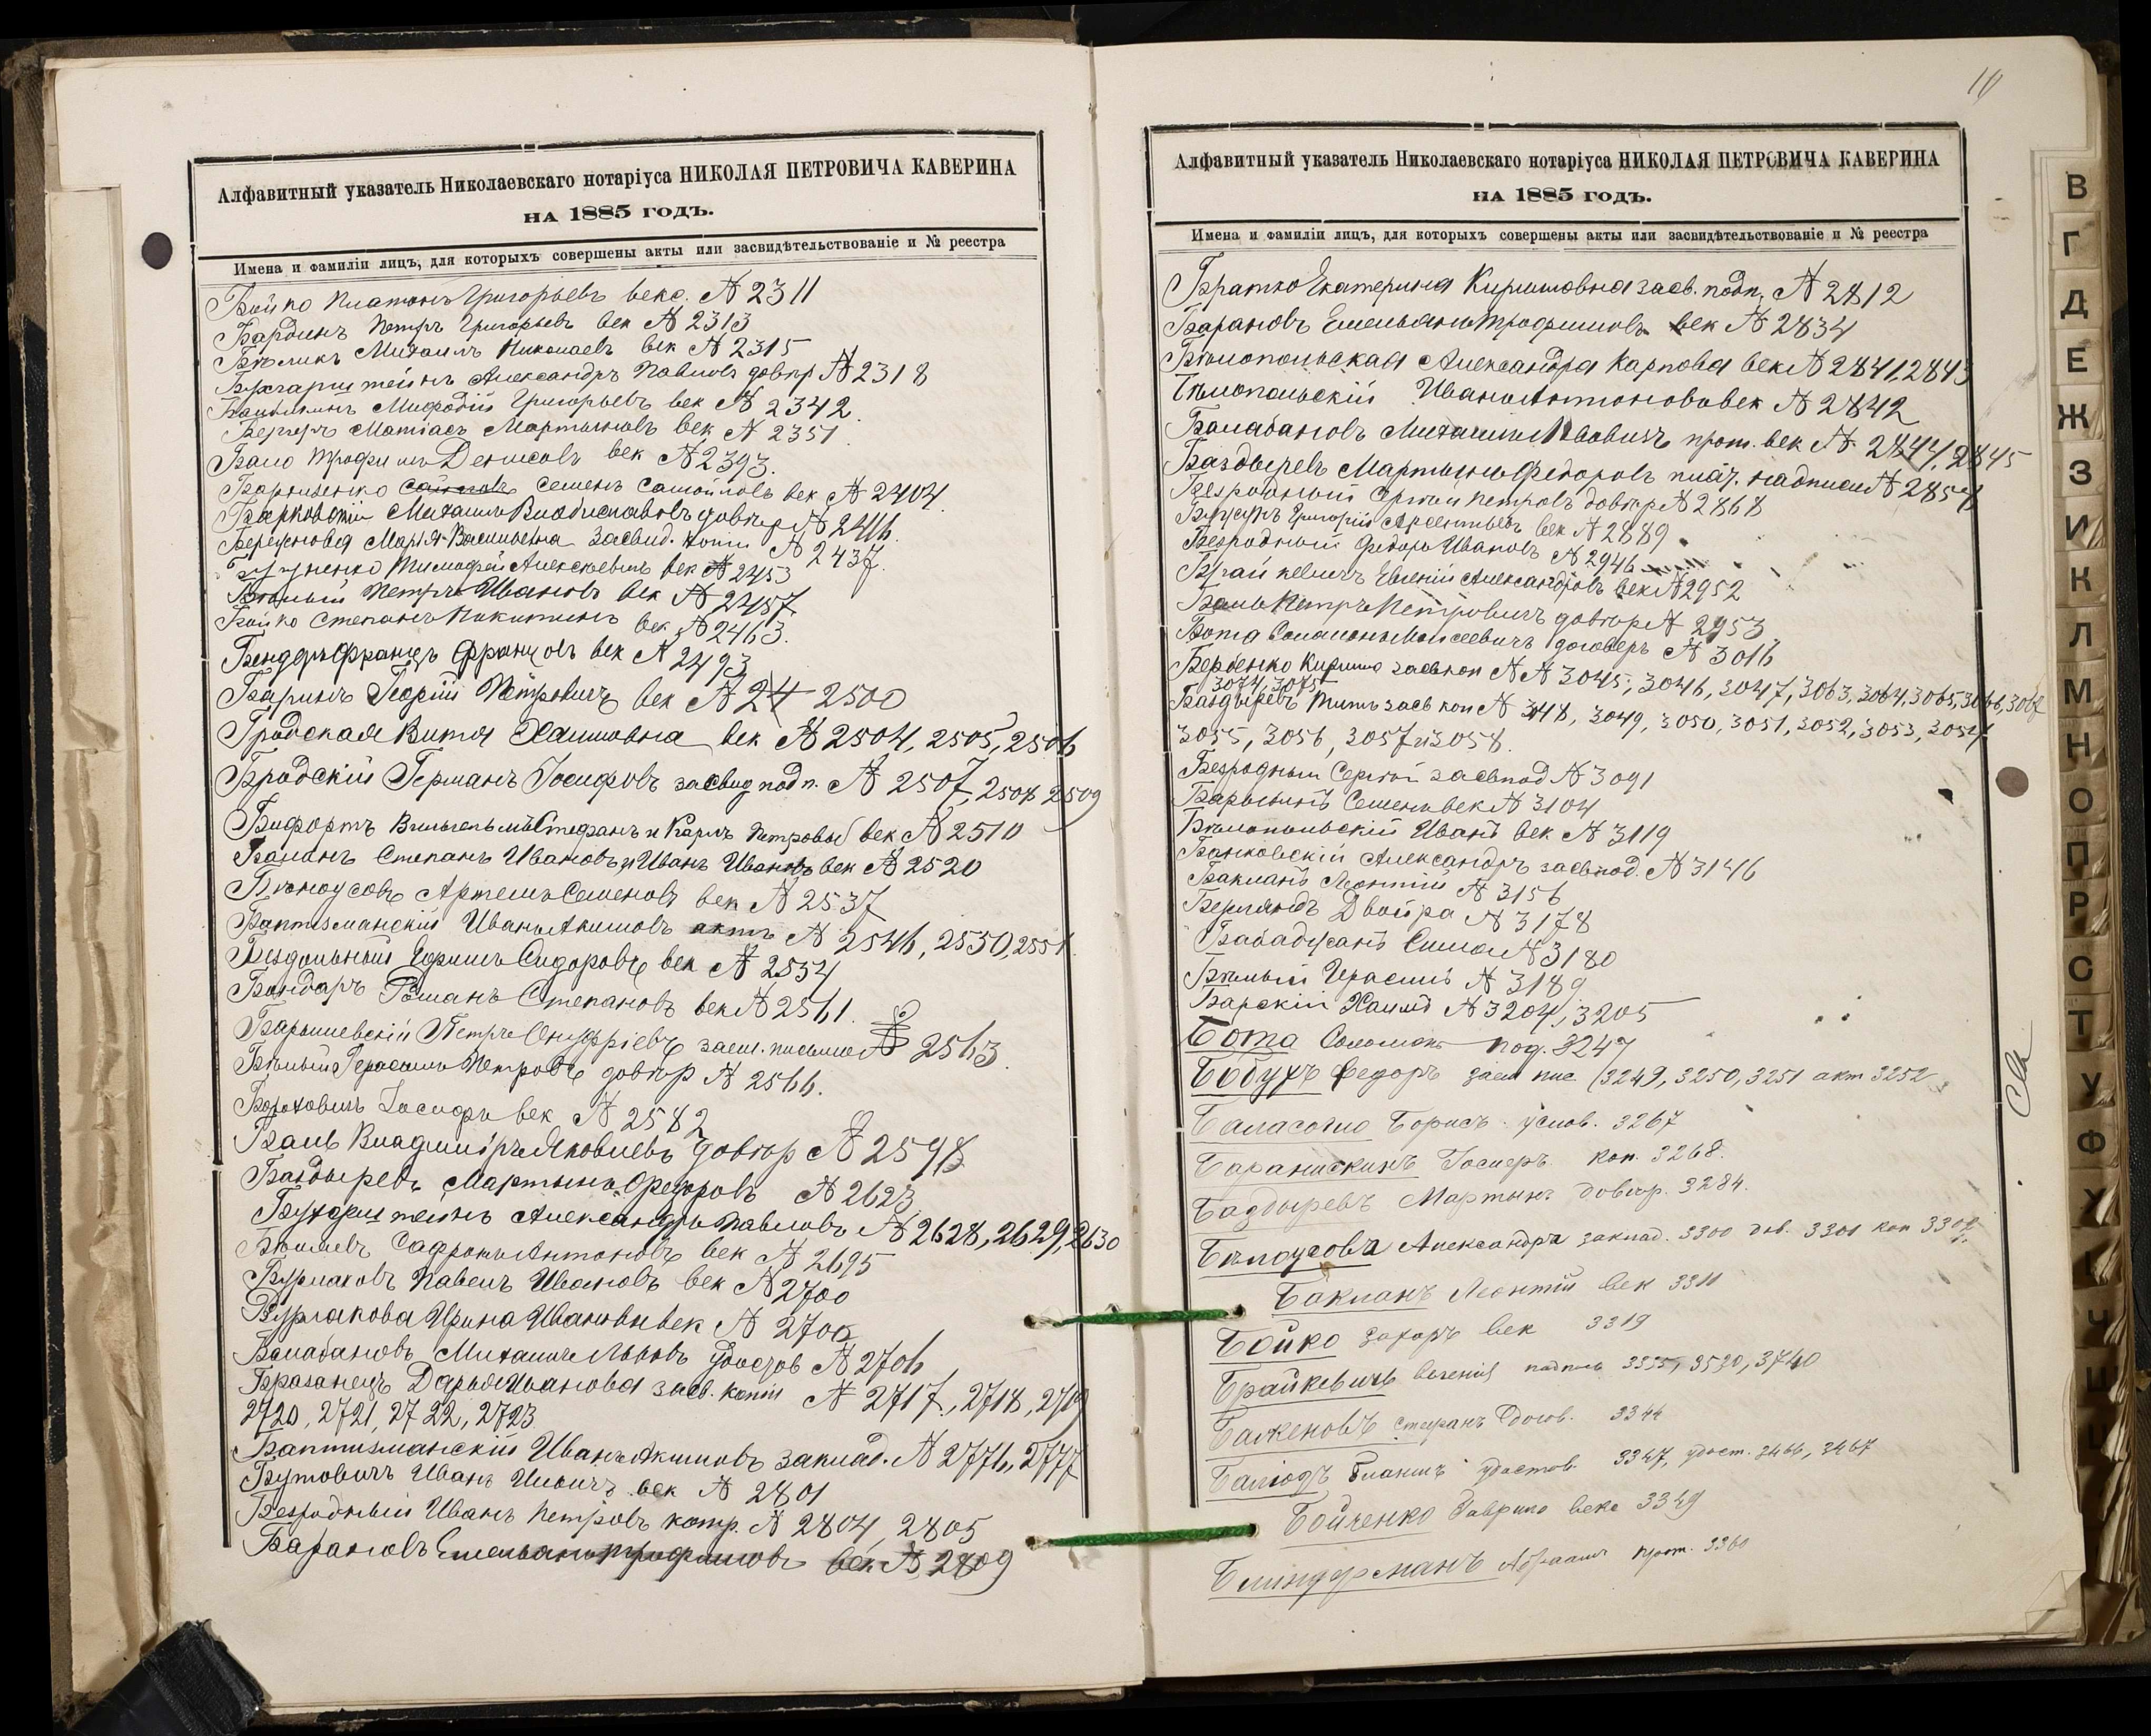 Алфавитный указатель Николаевскаго нотаріуса НИКОЛАЯ ПЕТРОВИЧА КАВЕРИНА
НА 1885 ГОДЪ.
Имена и фамиліи лицъ, для которыхъ совершены акты или засвидѣтельствованіе и № реестра
Бойко Платонъ Григорьевъ векс. № 2311
Бардинъ Петръ Григорьевъ век № 2313
Бѣликъ Михаилъ Николаевъ век № 2315
Александръ Павловъ довѣр № 2318
Мифодій Григорьевъ век № 2342
Бергеръ Матіасъ Мартыновъ век № 2351
Бало Трофимъ Денисовъ век № 2393.
Семенъ Самойловъ век № 2404
Барковскій Михаилъ Владиславовъ довѣр № 2416.
Марья Васильевна Засвид. копіи № 2437.
Тимофей Алексѣевичъ век № 2453
Бѣлый Петръ Ивановъ век № 2457
Бойко Степанъ Никитинъ век № 2463.
Бендеръ Францъ Францовъ век № 2493
Баринъ Георгій Петровичъ век № 24 2500
Бродская Витя Хаимовна век № 2504, 2505, 2506
Бродскій Германъ Іосифовъ засвид подп. № 2507, 2508 2509
Бифортъ Вильгельмъ Стефанъ и Карлъ Петровы век № 2510
Баланъ Степанъ Ивановъ и Иванъ Ивановъ век № 2520
Бѣлоусовъ Артемъ Семеновъ век № 2537
Баптизманскій Иванъ Акимовъ актъ № 2546, 2550, 2551
Бездольный Ефимъ Сидоровъ век № 2554
Бондарь Романъ Степановъ век № 2561.
Барышевскій Петръ Онуфріевъ заем. письмо № 2563.
Бѣлый Герасимъ Петровъ довѣр № 2566.
Борохавичъ Іосифъ век № 2582
Баль Владиміръ Яковлевъ довѣр № 2598
Баздыревъ Мартынъ Федоровъ № 2623
Александръ Павловъ № 2628, 2629, 2630
Сафронъ Антоновъ век № 2695
Бурлаковъ Павелъ Ивановъ век № 2700
Бурлакова Ирина Ивановн век № 2700
Балабановъ Михаилъ Львовъ № 2706
Дарья Иванова засв. копіи № 2717, 2718, 2719
2720, 2721, 2722, 2723
Баптизманскій Иванъ Акимовъ заклад. № 2776, 2777
Бутовичъ Иванъ Ильичъ век № 2801
Безродный Иванъ Петровъ контр. № 2804, 2805
Барановъ Емельянъ Трофимовъ век № 2809
10
Алфавитный указатель Николаевскаго нотаріуса НИКОЛАЯ ПЕТРОВИЧА КАВЕРИНА
НА 1885 ГОДЪ.
Имена и фамиліи лицъ, для которыхъ совершены акты или засвидѣтельствованіе и № реестра
Братко Екатерина Кириловна засв. подп. № 2812
Барановъ Емельянъ Трофимовъ век № 2834
Бѣлопольская Александра Карпова век № 2841, 2843
Бѣлопольскій Иванъ Антоновъ век № 2842
Балабановъ Михаилъ Львовичъ прот. век № 2844, 2845
Баздыревъ Мартынъ Федоровъ плат. надписи № 2858
Безродный Сергѣй Петровъ довѣр № 2868
Григорій Арсентьевъ век № 2889
Безродный Федоръ Ивановъ № 2946
Брайкевичъ Евгеній Александровъ век № 2952
Баль Петръ Петровичъ довѣр № 2953
Бота Соломонъ Моисеевичъ договоръ № 3016
Бербенко Кирило засв коп № № 3045, 3046, 3047, 3063, 3064, 3065, 3066, 3067
3074, 3075
Баздыревъ Титъ засв коп № 3048, 3049, 3050, 3051, 3052, 3053, 3054
3055, 3056, 3057 и 3058.
Безродный Сергѣй засв под № 3091
Семенъ век № 3104
Бѣлопольскій Иванъ век № 3119
Банковскій Александръ засв под. № 3146
Бакланъ Леонтій № 3156
Берляндъ Двойра № 3178
№ 3180
Бѣлый Герасимъ № 3189
Барскій Хаимъ № 3204, 3205
Бота Соломонъ под. 3247
Бобухъ Федоръ заем пис (3249, 3250, 3251 акт 3252
Баласогло Борисъ услов. 3267
коп. 3268.
Баздыревъ Мартынъ довѣр. 3284.
Бѣлоусова Александра заклад. 3300 дов. 3301 коп 3302.
Бакланъ Леонтій век 3311
Бойко Захаръ век 3319
Брайкевичъ Евгеній подпись 3335, 3520, 3740
Баженовъ Стефанъ догов. 3344
удостов. 3347, удост. 3466, 3467
Бойченко Гаврило векс 3349
Блиндерманъ Абрамъ прот. 3360